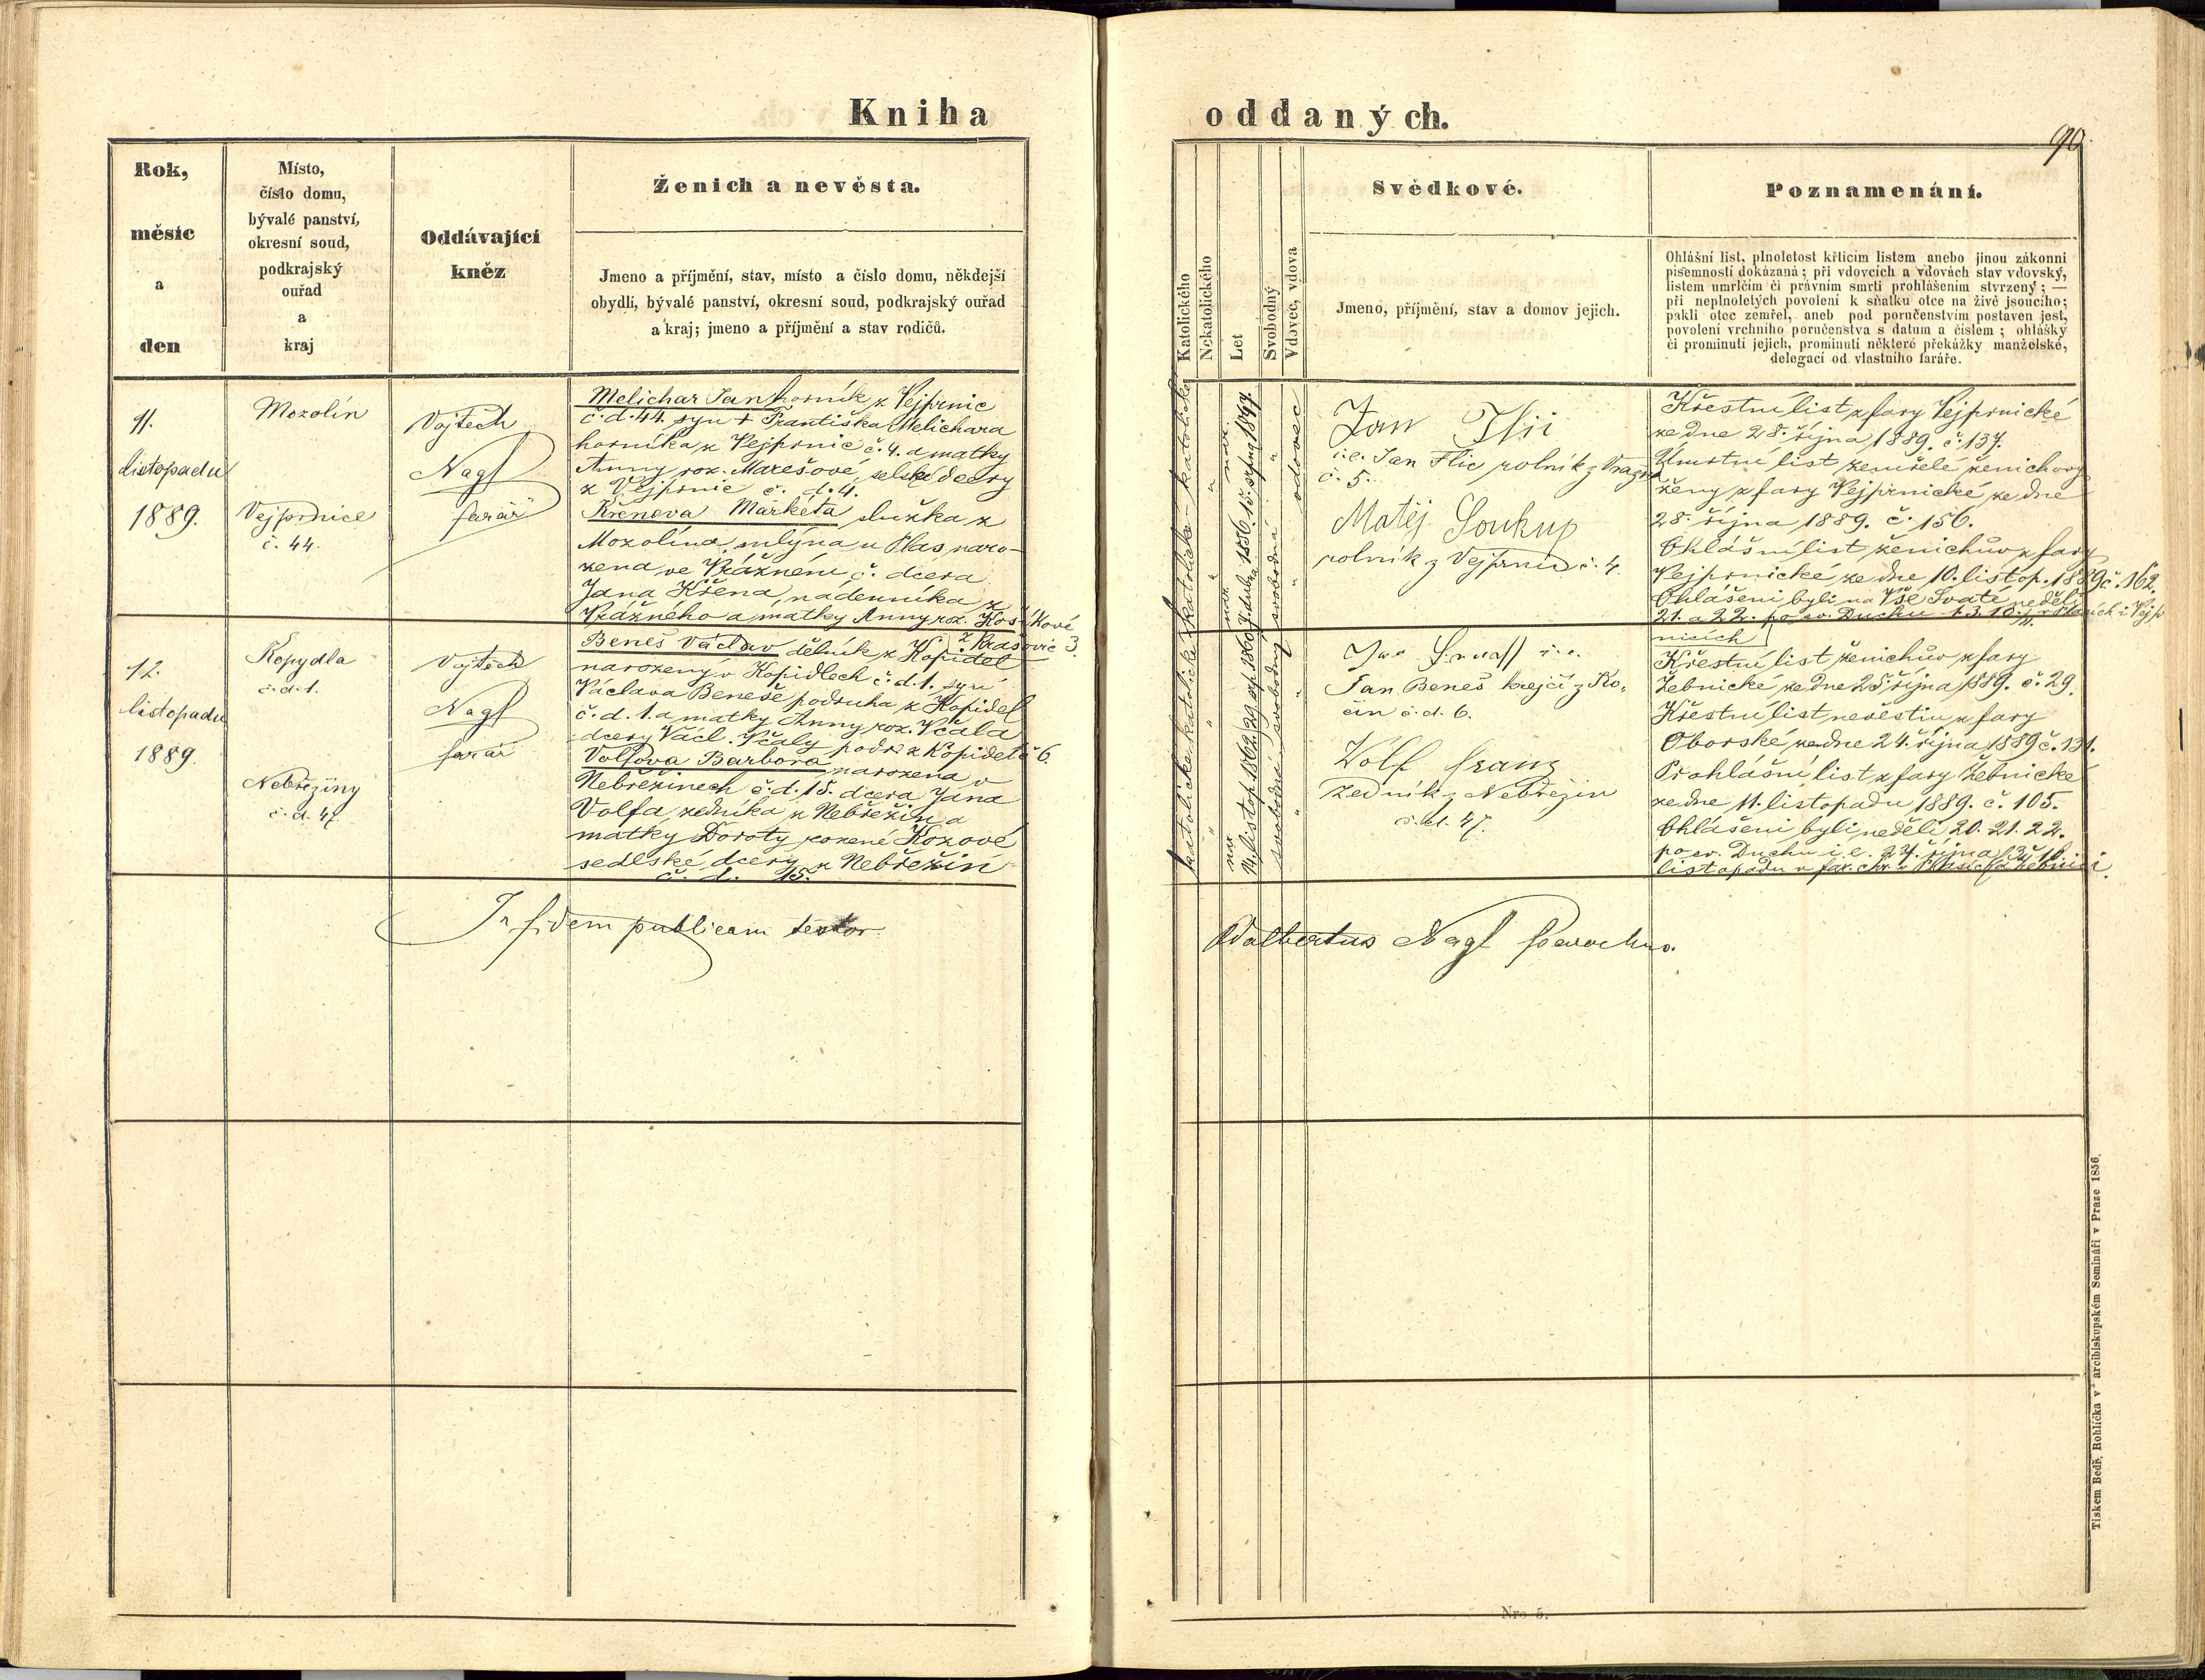 Kniha
Rok,
měsíc
a
den
Místo,
číslo domu,
bývalé panství,
okresní soud,
podkrajský
ouřad
a
kraj
Oddávající
kněz
Ženich a nevěsta.
Jmeno a příjmění, stav, místo a číslo domu, někdejší
obydlí, bývalé panství, okresní soud, podkrajský ouřad
a kraj; jmeno a příjmění a stav rodičů.
11.
listopadu
1889.
Mozolín
Vejprnice
č. 44.
Vojtěch
Nagl
farář
Melichar Jan horník z Vejprnic
č. d. 44. syn + Františka Melichara
horníka z Vejprnic č. 4. a matky
Anny roz. Marešové, selské dcery
z Vejprnic č. d. 4.
Křenova Markéta služka z
Mozolína mlýna u Plas naro-
zena ve Vrážném, č. dcera
Jana Křena, nadenníka z
Vrážného a matky Anny roz.
z Krašovic 3.
12.
listopadu
1889
Kopydla
č. d. 1.
Nebřeziny
č. d. 47.
Vojtěch
Nagl
farář
Beneš Václav dělník z Kopidel
narozený v Kopidlech č. d. 1. syn
Václava Beneše podruha z Kopidel
č. d. 1. a matky Anny roz. Včala
dcery Václ. Včaly podr. z Kopidel č. 6.
Volfova Barbora narozena v
Nebřezinech č. d. 15. dcera Jana
Volfa, zedníka z Nebřezin a
matky Doroty rozené Kozové
sedlské dcery z Nebřezin
č. d. 15.
In fidem publicam testor
oddaných.
90
Katolického
Nekatolického
Let
Svobodný
Vdovec, vdova
Svědkové.
Jmeno, příjmění, stav a domov jejich.
Poznamenání.
Ohlášní list, plnoletost křticím listem anebo jinou zákonni
písemností dokázaná; při vdovcích a vdovách stav vdovský,
listem umrlčím či právním smrti prohlášením stvrzený; —
při neplnoletých povolení k sňatku otce na živě jsoucího;
pakli otec zemřel, aneb pod poručenstvím postaven jest,
povolení vrchního poručenstva s datum a číslem; ohlášky
či prominutí jejich, prominutí některé překážky manželské,
delegací od vlastního faráře.
katolické - katolické
svobodná
vdovec
Jan
i. e. Jan Flic rolník z
č. 5.
Matěj Soukup
rolník z Vejprnic č. 4.
Křestní list z fary Vejprnické
ze dne 28. října 1889. č. 137.
Úmrtní list zemřelé ženichovy
ženy z fary Vejprnické ze dne
28. října 1889. č. 156.
Ohlášní list ženichův z fary
Vejprnické ze dne 10. listop. 1889 č. 162.
Ohlášeni byli na Vše Svaté, neděli
21. a 22. po sv. Duchu
nicích
katolické katolické
svobodná svobodný
i. e.
Jan Beneš krejčí z Ko-
čín č. d. 6.
Wolf Franz
zedník z Nebřezin
č. d. 47.
Křestní list ženichův z fary
Žebnické ze dne 25. října 1889. č. 29.
Křestní list nevěstin z fary
Oborské ze dne 24. října 1889 č. 131.
Prohlášní list z fary Žebnické
ze dne 11. listopadu 1889. č. 105.
Ohlášeni byli neděli 20. 21. 22.
po sv. Duchu i. e. 27. října
listopadu v far. chr. v Plasích a Žebnici.
Adalbertus Nagl Parochus.
Nro 5.
Tiskem Bedř. Rohlíčka v arcibiskupském Semináři v Praze 1856.